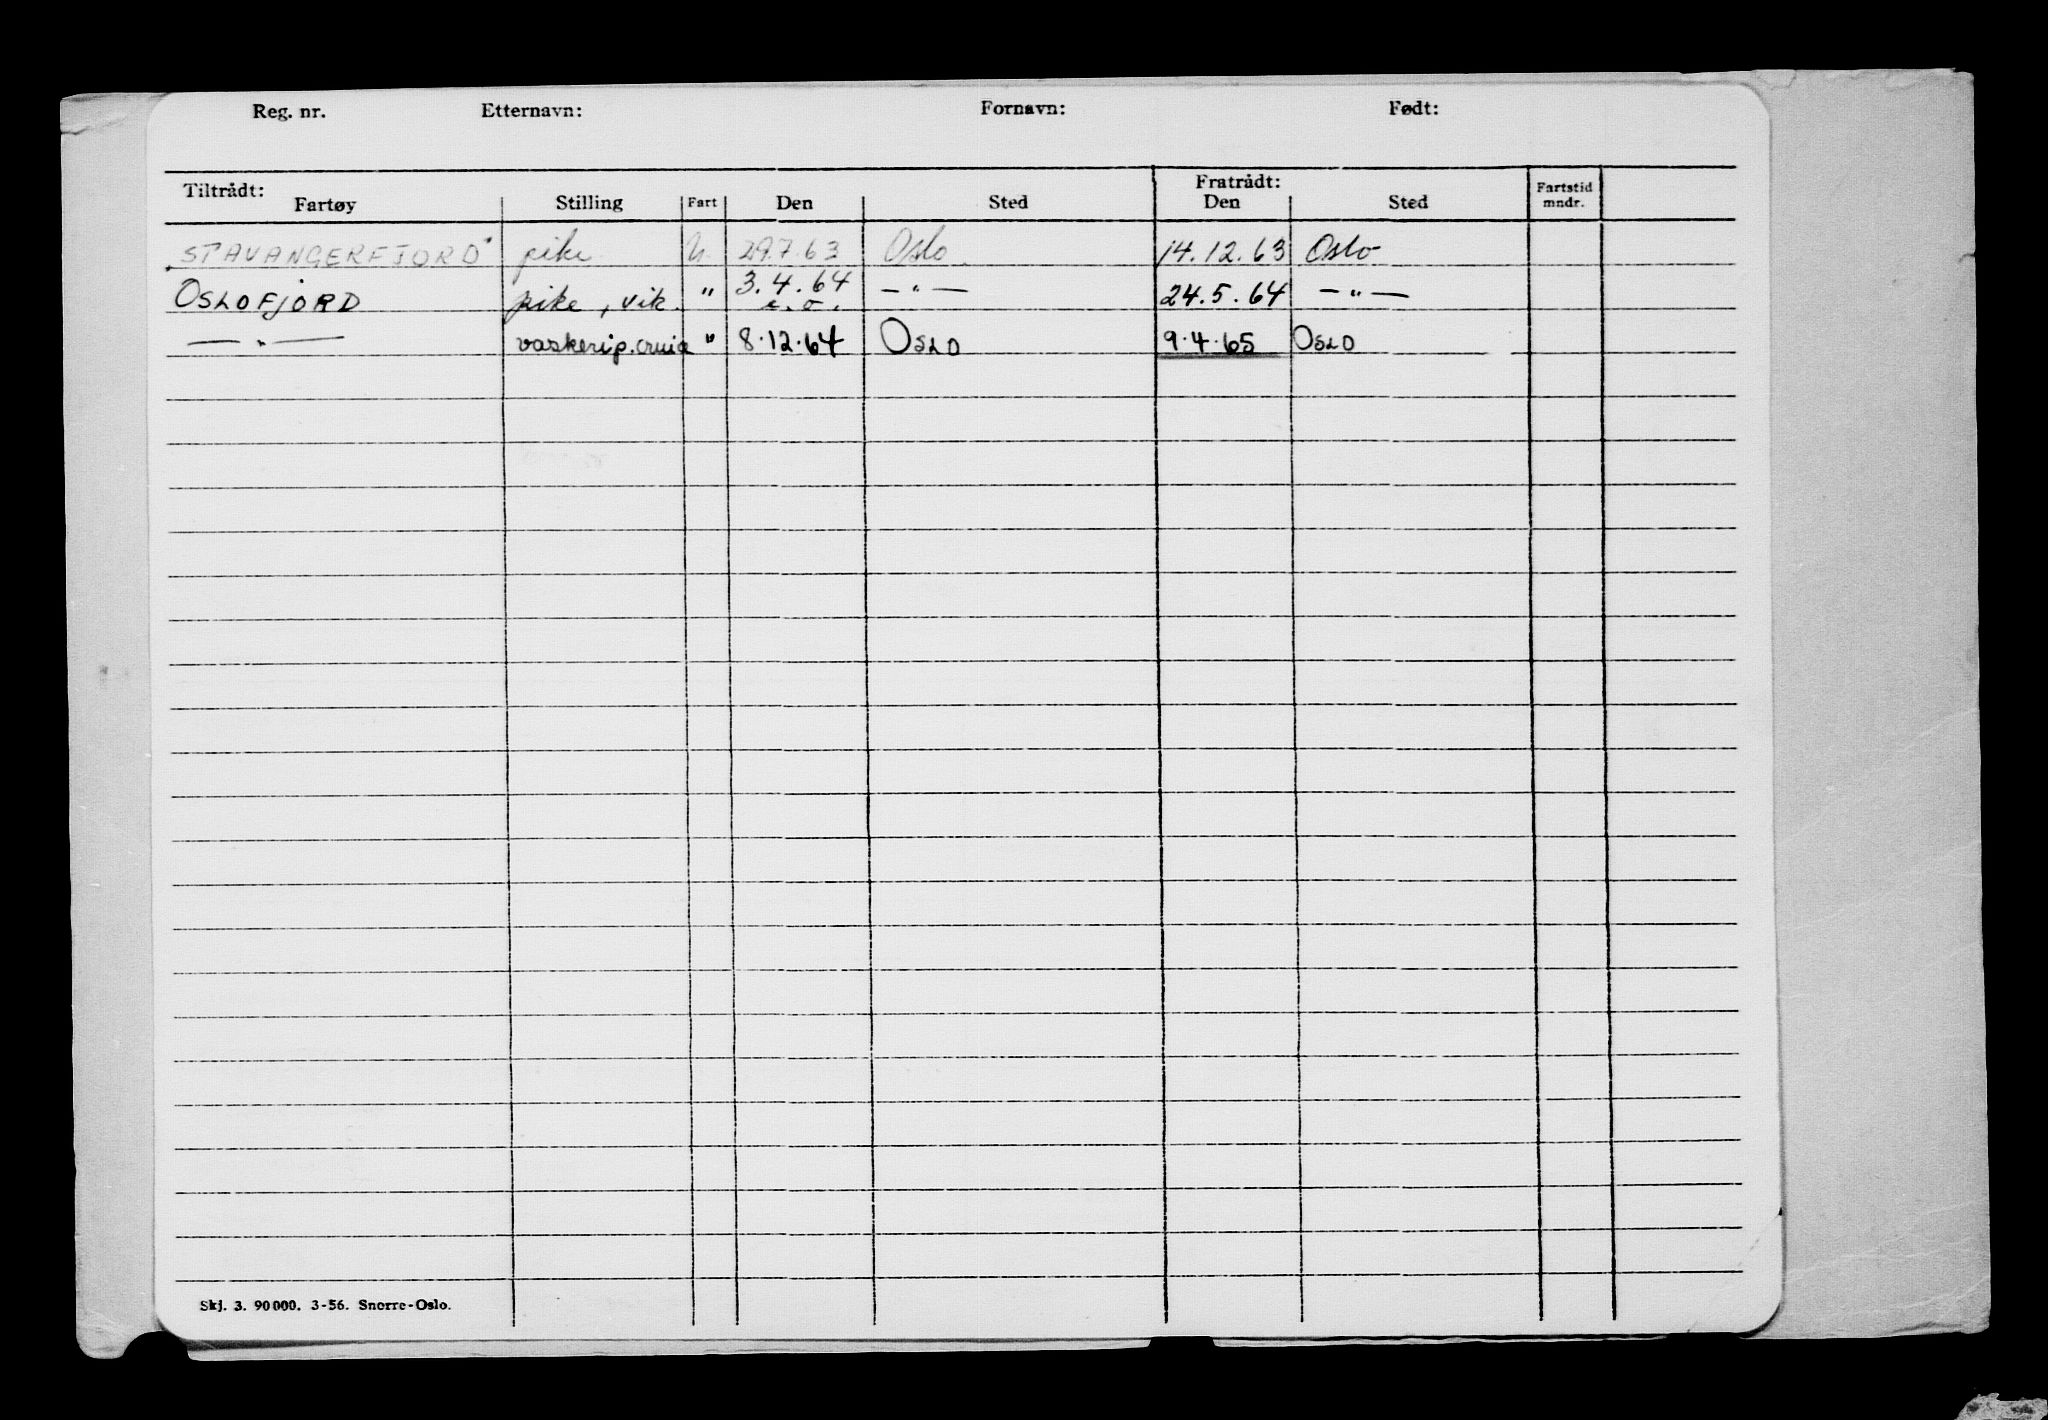 Reg. nr. Etternavn: Fornavn: Født:
Tiltrådt: Fratrådt:
Fartøy Stilling Fart Den Sted Den Sted Fartstid mndr.
"STAVANGERFJORD" pike U. 29.7.63 Oslo 14.12.63 Oslo
OSLOFJORD pike, vik. " 3.4.64 e.o. — " — 24.5.64 — " —
— " — vaskerip. " 8.12.64 OSLO 9.4.65 OSLO
Skj. 3. 90000. 3-56. Snorre-Oslo.